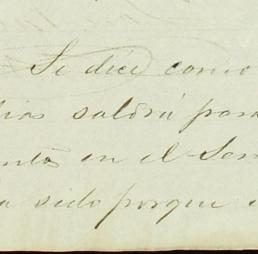 Se dice como
dias saldrá para
en el Sen
a sido porque